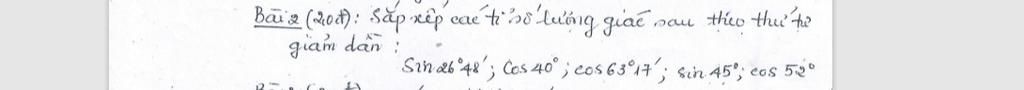 Bài 2 (2,0đ): Sắp xếp các tỉ số lượng giác sau theo thứ tự
giảm dần :
Sin 26°48'; Cos 40°; cos 63°17'; sin 45°; cos 52°